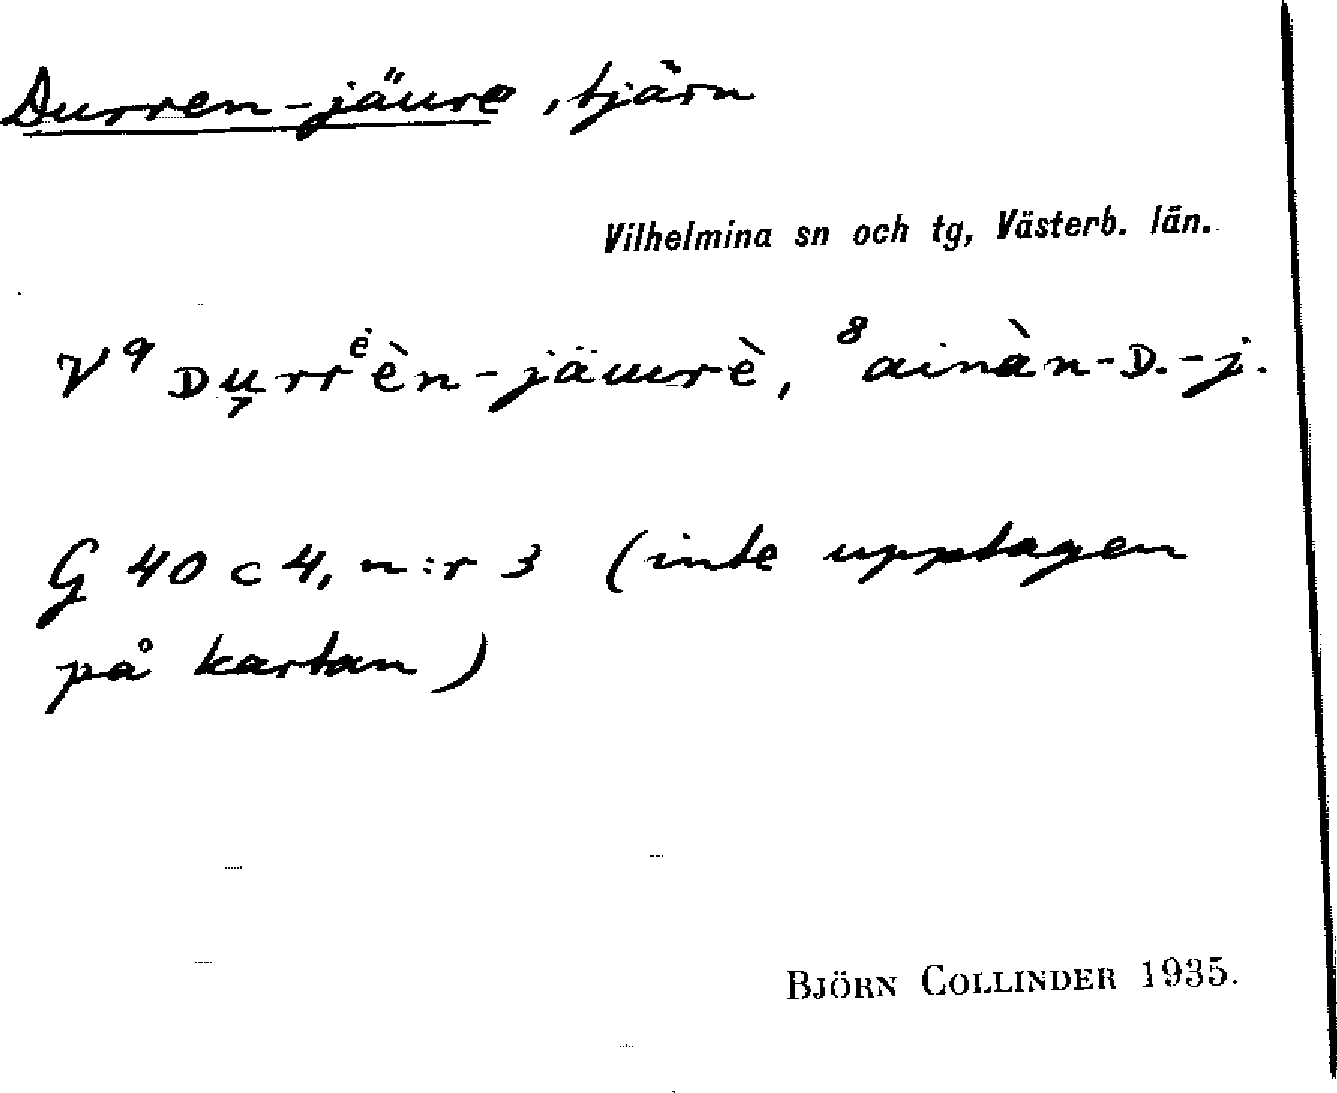 Durren-jäure, tjärn
Vilhelmina sn och tg, Västerb. län.
V⁹ ᴅu̜rrᵉ̀èn-jäuurè, ⁸ainàn-ᴅ.-j.
G 40 c 4, n:r 3 (inte upptagen
på kartan)
BJÖRN COLLINDER 1935.